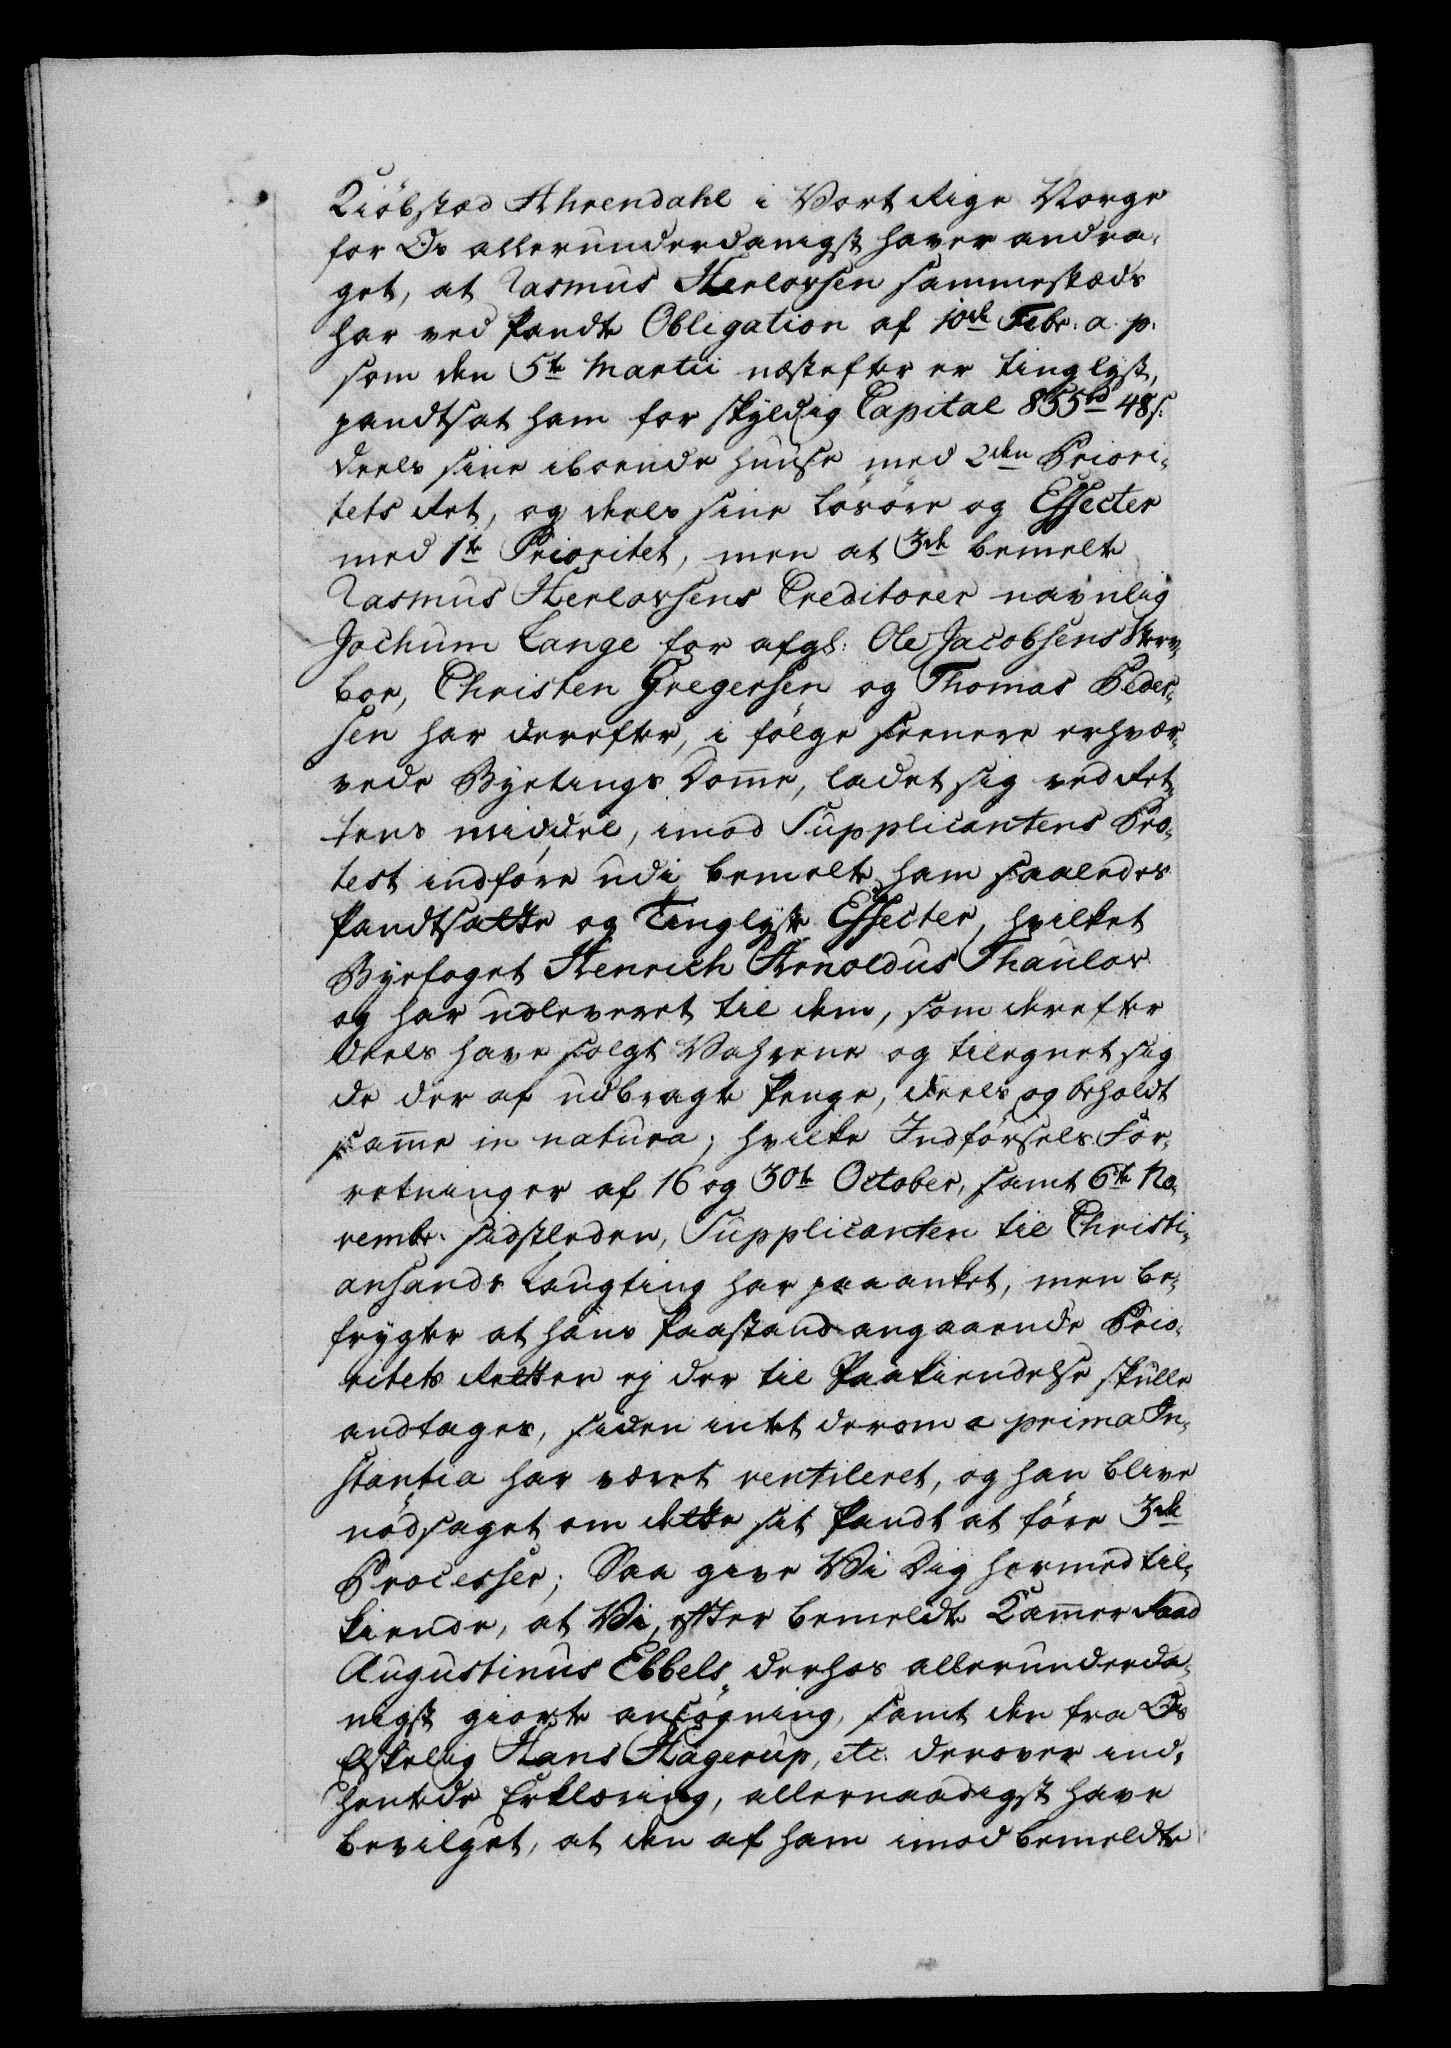 Kiöbstæd Ahrendahl i Vort Rige Norge
for Os allerunderdanigst haver andra-
get, at Rasmus Herlovsen sammestæds
har ved Pandte Obligation af 10de Febr: a. p.
som den 5te Martii næstefter er tinglyst,
pandtsat ham for skyldig Capital 855 rd 48 s:
deels sine iboende huuse med 2den Priori-
tets Ret, og deels sine Lösöre og Effecter
med 1te Prioritet, men at 3de bemelte
Rasmus Herlovsens Creditorer navnlig
Jochum Lange for afgl: Ole Jacobsens Sterv-
boe, Christen Gregersen og Thomas Peder-
sen har derefter, i fölge seenere erhver-
vede Byetings Domme, ladet sig ved Ret-
tens middel, imod Supplicantens Pro-
test indföre udi bemelte ham saaledes
Pandtsatte og Tinglyste Effecter, hvilket
Byefoget Henrich Arnoldus Thaulov
og har udleveret til dem, som derefter
deels have solgt Vahrene og tilegnet sig
de der af udbragte Penge, deels og beholdt
samme in natura; hvilke Indförsels For-
retninger af 16 og 30te October, samt 6te No-
vembr: sidstleden, Supplicanten til Christi-
ansands Laugting har paaanket, men be-
frygter at hans Paastand angaaende Prio-
ritets Retten ej der til Paakiendelse skulle
andtages, siden intet derom a prima In-
stantia har været ventileret, og han blive
nödsaget om dette sit Pandt at före 3de
Processer; Saa give Vi Dig hermed til-
kiende, at Vi, efter bemeldte Kammer Raad
Augustinus Ebbels derhos allerunderda-
nigst giorte ansögning, samt den fra Os
Elskelig Hans Hagerup, etc. derover ind-
hentede Erklæring, allernaadigst have
bevilget, at den af ham imod bemeldte